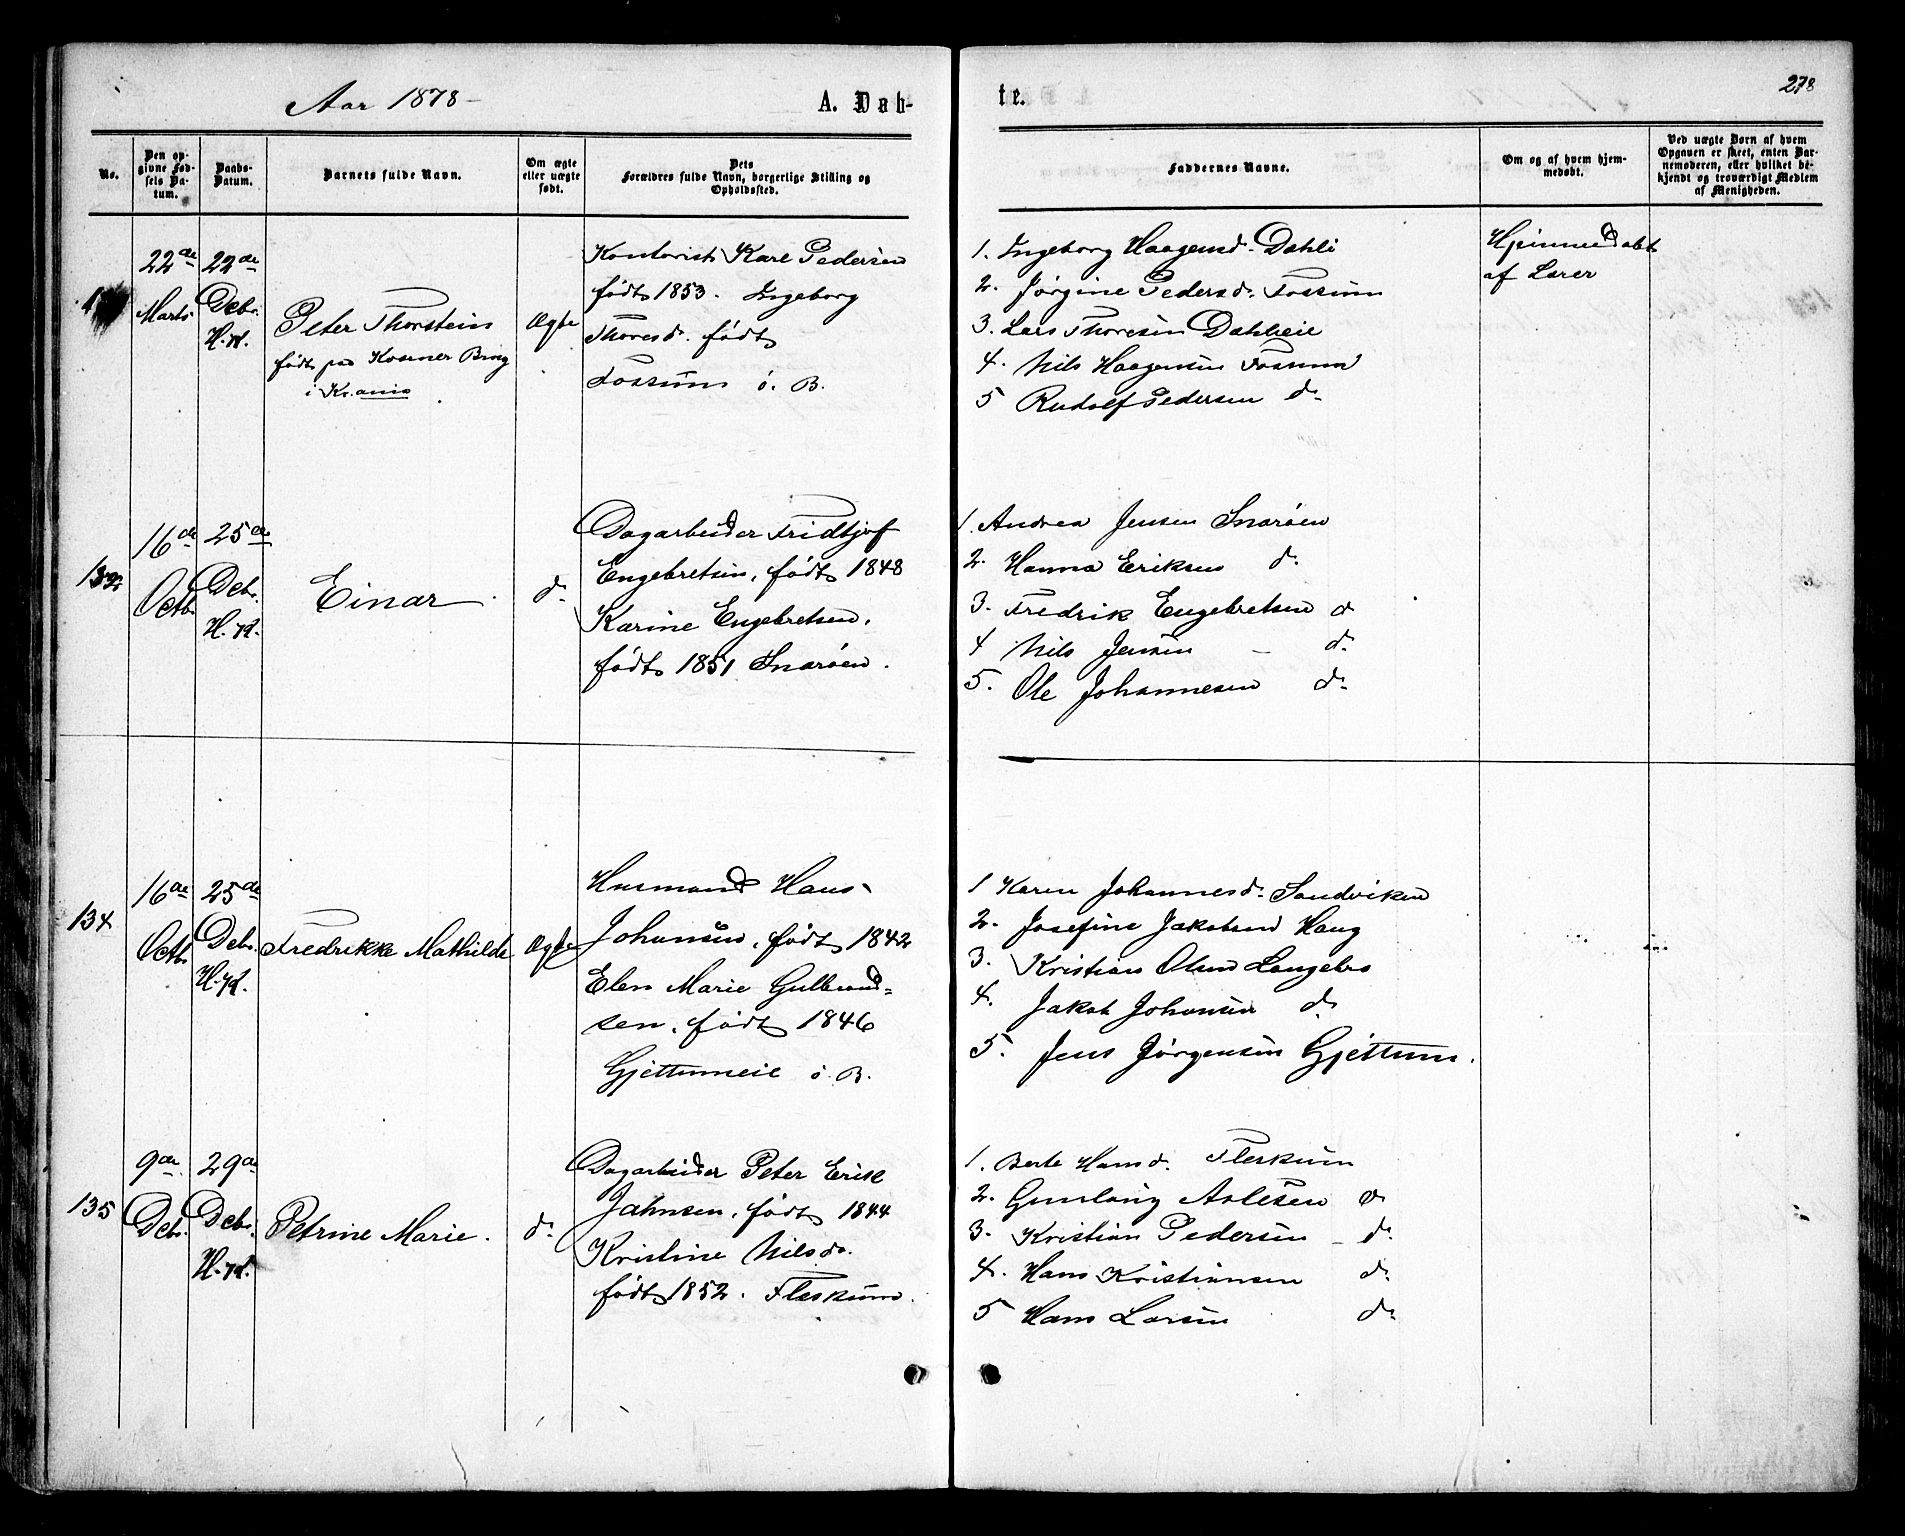 Aar 1878
A. Døb-
te.
278
No.
Den op-
givne Fød-
sels Da-
tum.
Daabs-
Datum.
Barnets fulde Navn.
Om ægte
eller uægte
født.
Dets
Forældres fulde Navn, borgerlige Stilling og
Opholdssted.
Faddernes Navne.
Om og af hvem hjem-
medøbt.
Ved uægte Børn af hvem
Opgaven er skeet, enten Bar-
nemoderen, eller hvilket be-
kjendt og troværdigt Medlem
af Menigheden.
22de
Marts
22de
Debr.
H. K.
Peter Thorstein
født paa
i Kr.ania
Ægte
Kontorist Karl Pedersen
født 1853. Ingeborg
Thoresd. født
Fossum i B.
1. Ingeborg Haagensd. Dahli
2. Jørgine Pedersd. Fossum
3. Lars Thoresen Dahlieie
4. Nils Haagensen Fossum
5 Rudolf Pedersen do
Hjemmedøbt
af Lærer
132
16de
Octb.
25de
Debr.
H. K.
Einar
do
Dagarbeider Fridtjof
Engebretsen, født 1848
Karine Engebretsen,
født 1851 Snarøen.
1. Andrea Jensen Snarøen
2. Hanna Eriksen do
3. Fredrik Engebretsen do
4 Nils Jensen - do
5. Ole Johannesen do
134
16de
Octb.
25de
Debr.
H. K.
Fredrikke Mathilde
Ægte
Husmand Hans
Johansen, født 1842
Elen Marie Gulbrand=
sen, født 1846
Gjettumeie i B.
1 Karen Johannesd. Sandviken
2. Josefine Jakobsen Haug
3. Kristian Olsen Langebro
4. Jakob Johansen do
5. Jens Jørgensen Gjettum.
135
9de
Debr.
29de
Debr.
H. K.
Petrine Marie.
do
Dagarbeider Peter Erik
Jahnsen, født 1844
Kristine Nilsd.
født 1852. Fleskum.
1. Berte Hansd. Fleskum
2. Gunlaug Aslesen do
3. Kristian Pedersen - do
4. Hans Kristiansen do
5 Hans Larsen do